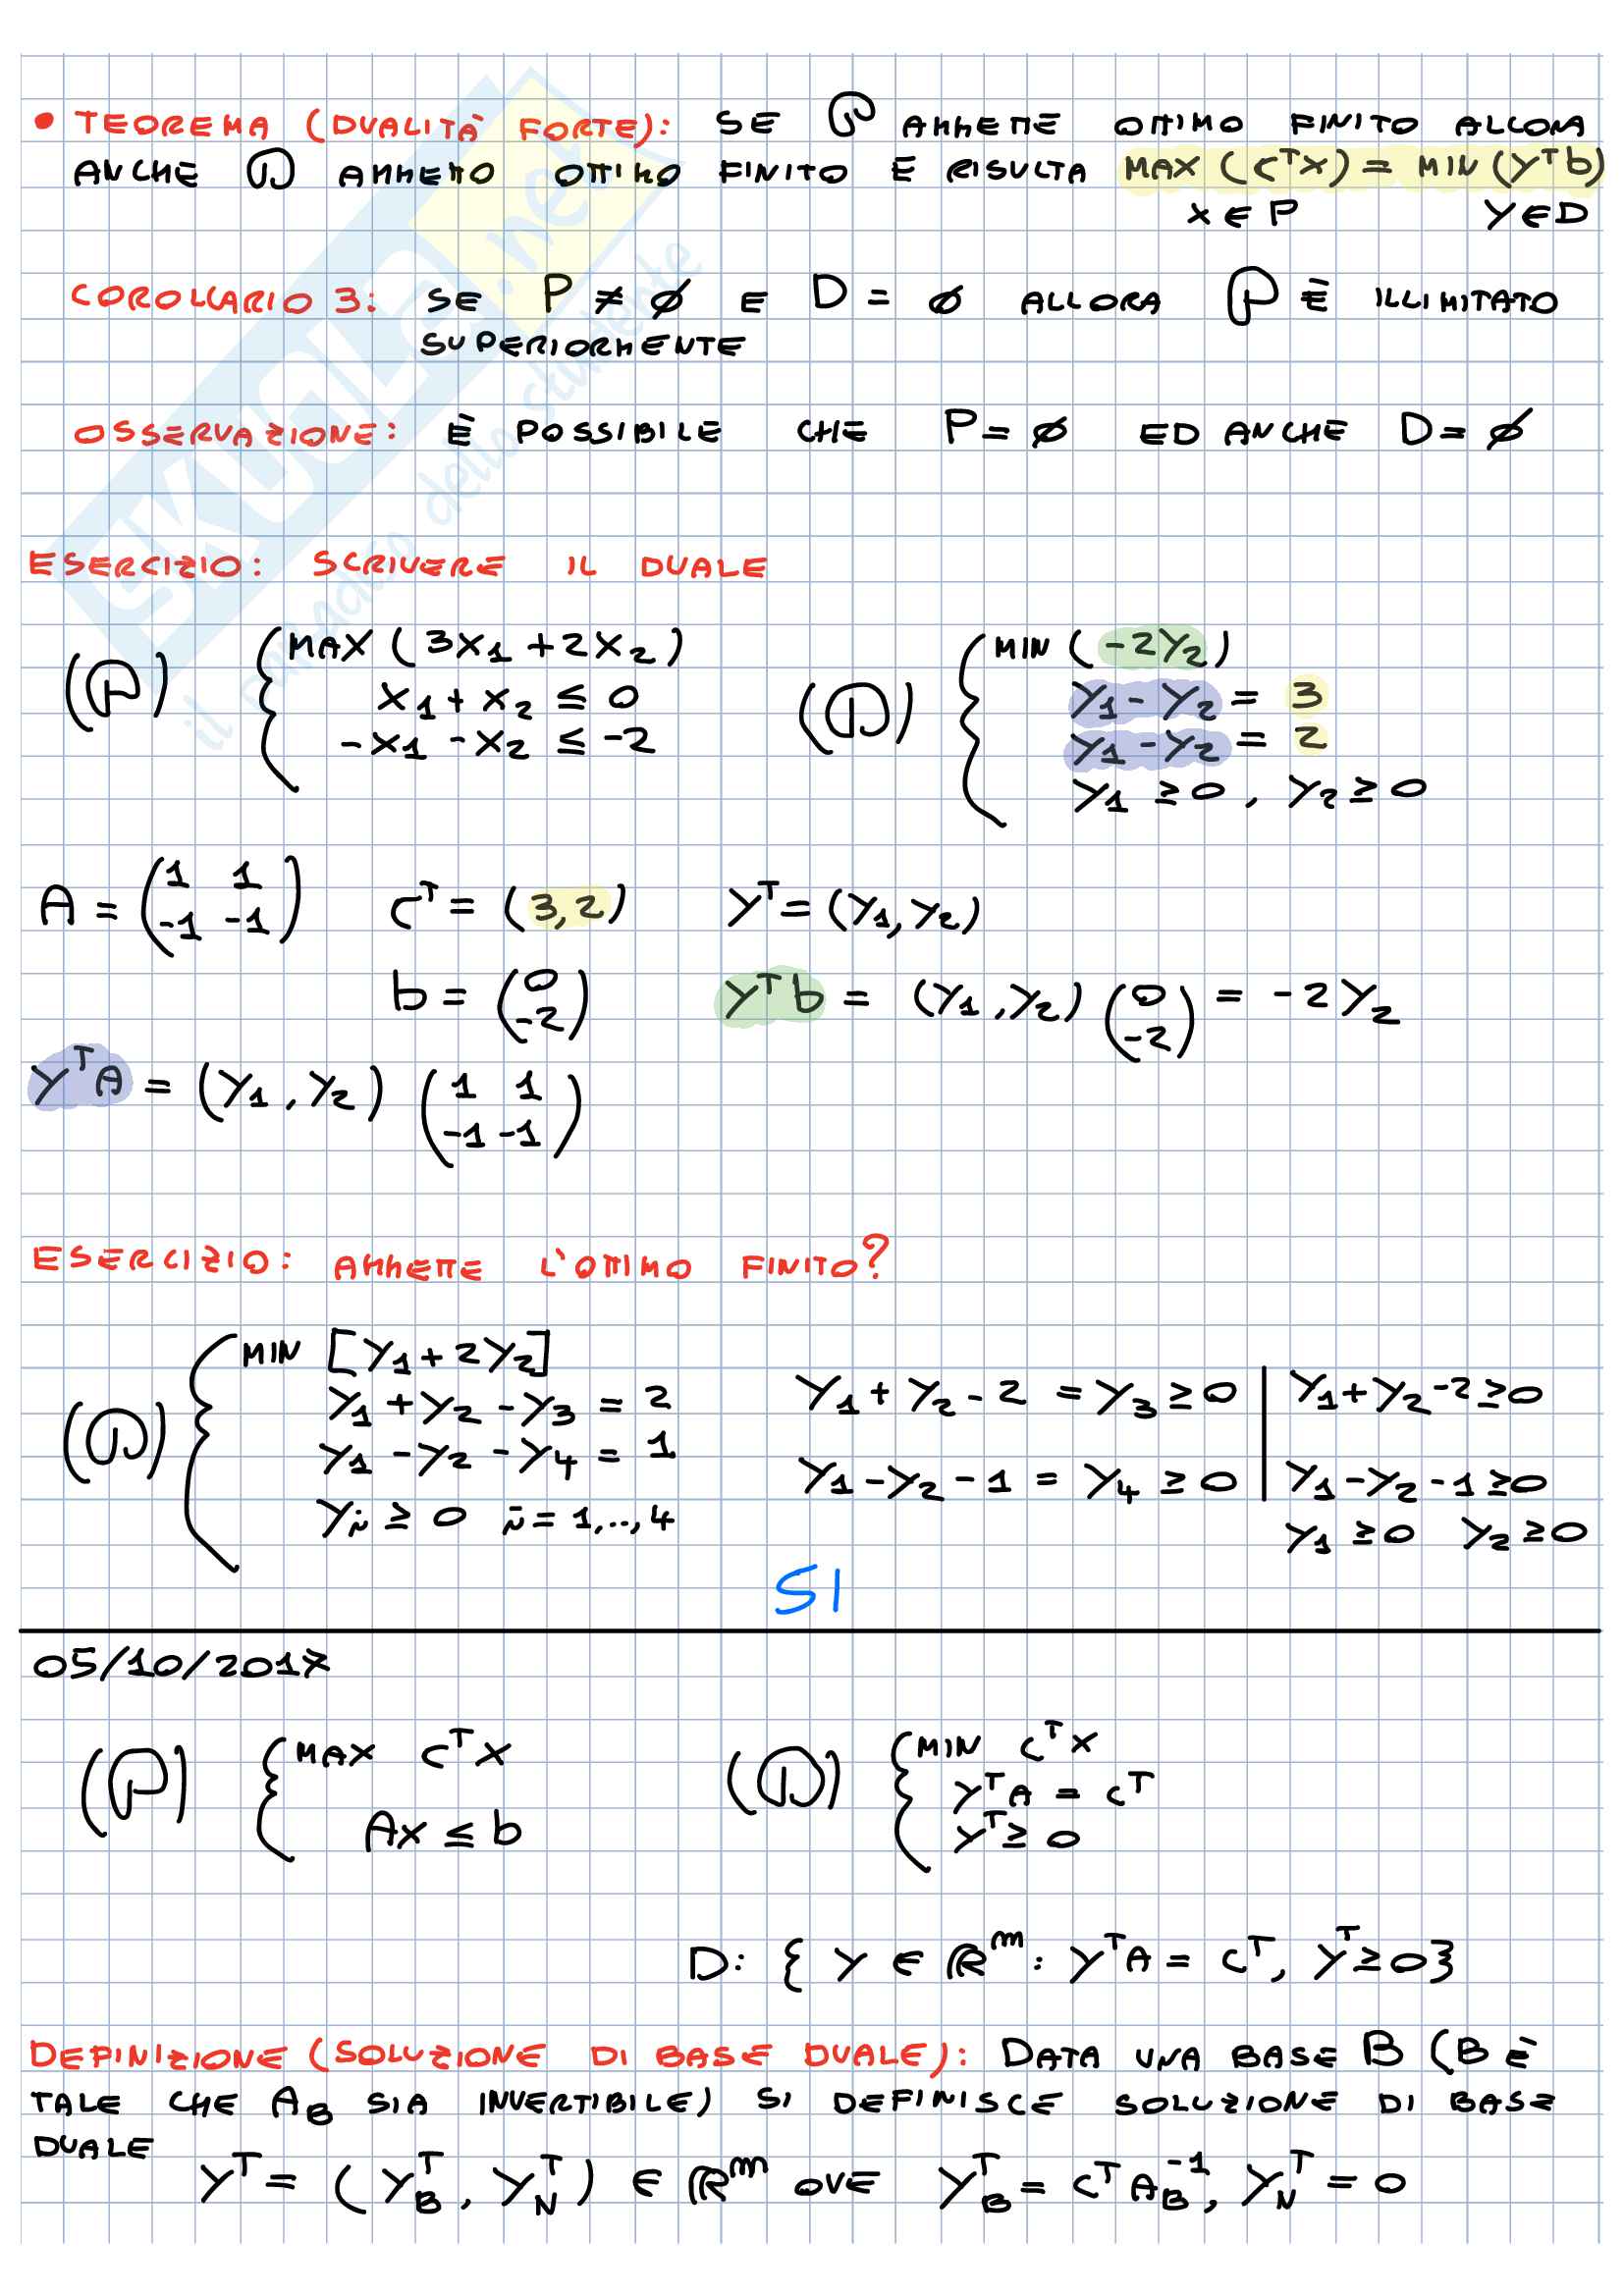 • TEOREMA (DUALITÀ FORTE): SE P AMMETTE OTTIMO FINITO ALLORA
ANCHE D AMMETTO OTTIMO FINITO E RISULTA MAX (cᵀx) = MIN (yᵀb)
x ∈ P y ∈ D
COROLLARIO 3: SE P ≠ ∅ E D = ∅ ALLORA P È ILLIMITATO
SUPERIORMENTE
OSSERVAZIONE: È POSSIBILE CHE P = ∅ ED ANCHE D = ∅
ESERCIZIO: SCRIVERE IL DUALE
(P) { MAX (3x₁ + 2x₂)
x₁ + x₂ ≤ 0
-x₁ - x₂ ≤ -2
(D) { MIN (-2y₂)
y₁ - y₂ = 3
y₁ - y₂ = 2
y₁ ≥ 0, y₂ ≥ 0
A = (1 1
-1 -1)
cᵀ = (3,2)
yᵀ = (y₁, y₂)
b = (0
-2)
yᵀb = (y₁, y₂) (0
-2) = -2y₂
yᵀA = (y₁, y₂) (1 1
-1 -1)
ESERCIZIO: AMMETTE L'OTTIMO FINITO?
(D) { MIN [y₁ + 2y₂]
y₁ + y₂ - y₃ = 2
y₁ - y₂ - y₄ = 1
yᵢ ≥ 0 i = 1,..,4
y₁ + y₂ - 2 = y₃ ≥ 0
y₁ - y₂ - 1 = y₄ ≥ 0
y₁ + y₂ - 2 ≥ 0
y₁ - y₂ - 1 ≥ 0
y₁ ≥ 0 y₂ ≥ 0
SI
05/10/2017
(P) { MAX cᵀx
Ax ≤ b
(D) { MIN cᵀx
yᵀA = cᵀ
yᵀ ≥ 0
D: { y ∈ ℝᵐ : yᵀA = cᵀ, yᵀ ≥ 0}
DEFINIZIONE (SOLUZIONE DI BASE DUALE): DATA UNA BASE B (B È
TALE CHE A_B SIA INVERTIBILE) SI DEFINISCE SOLUZIONE DI BASE
DUALE
yᵀ = (y_Bᵀ, y_Nᵀ) ∈ ℝᵐ OVE y_Bᵀ = cᵀA_B⁻¹, y_Nᵀ = 0
SKUOLA.net
il paradiso dello studente